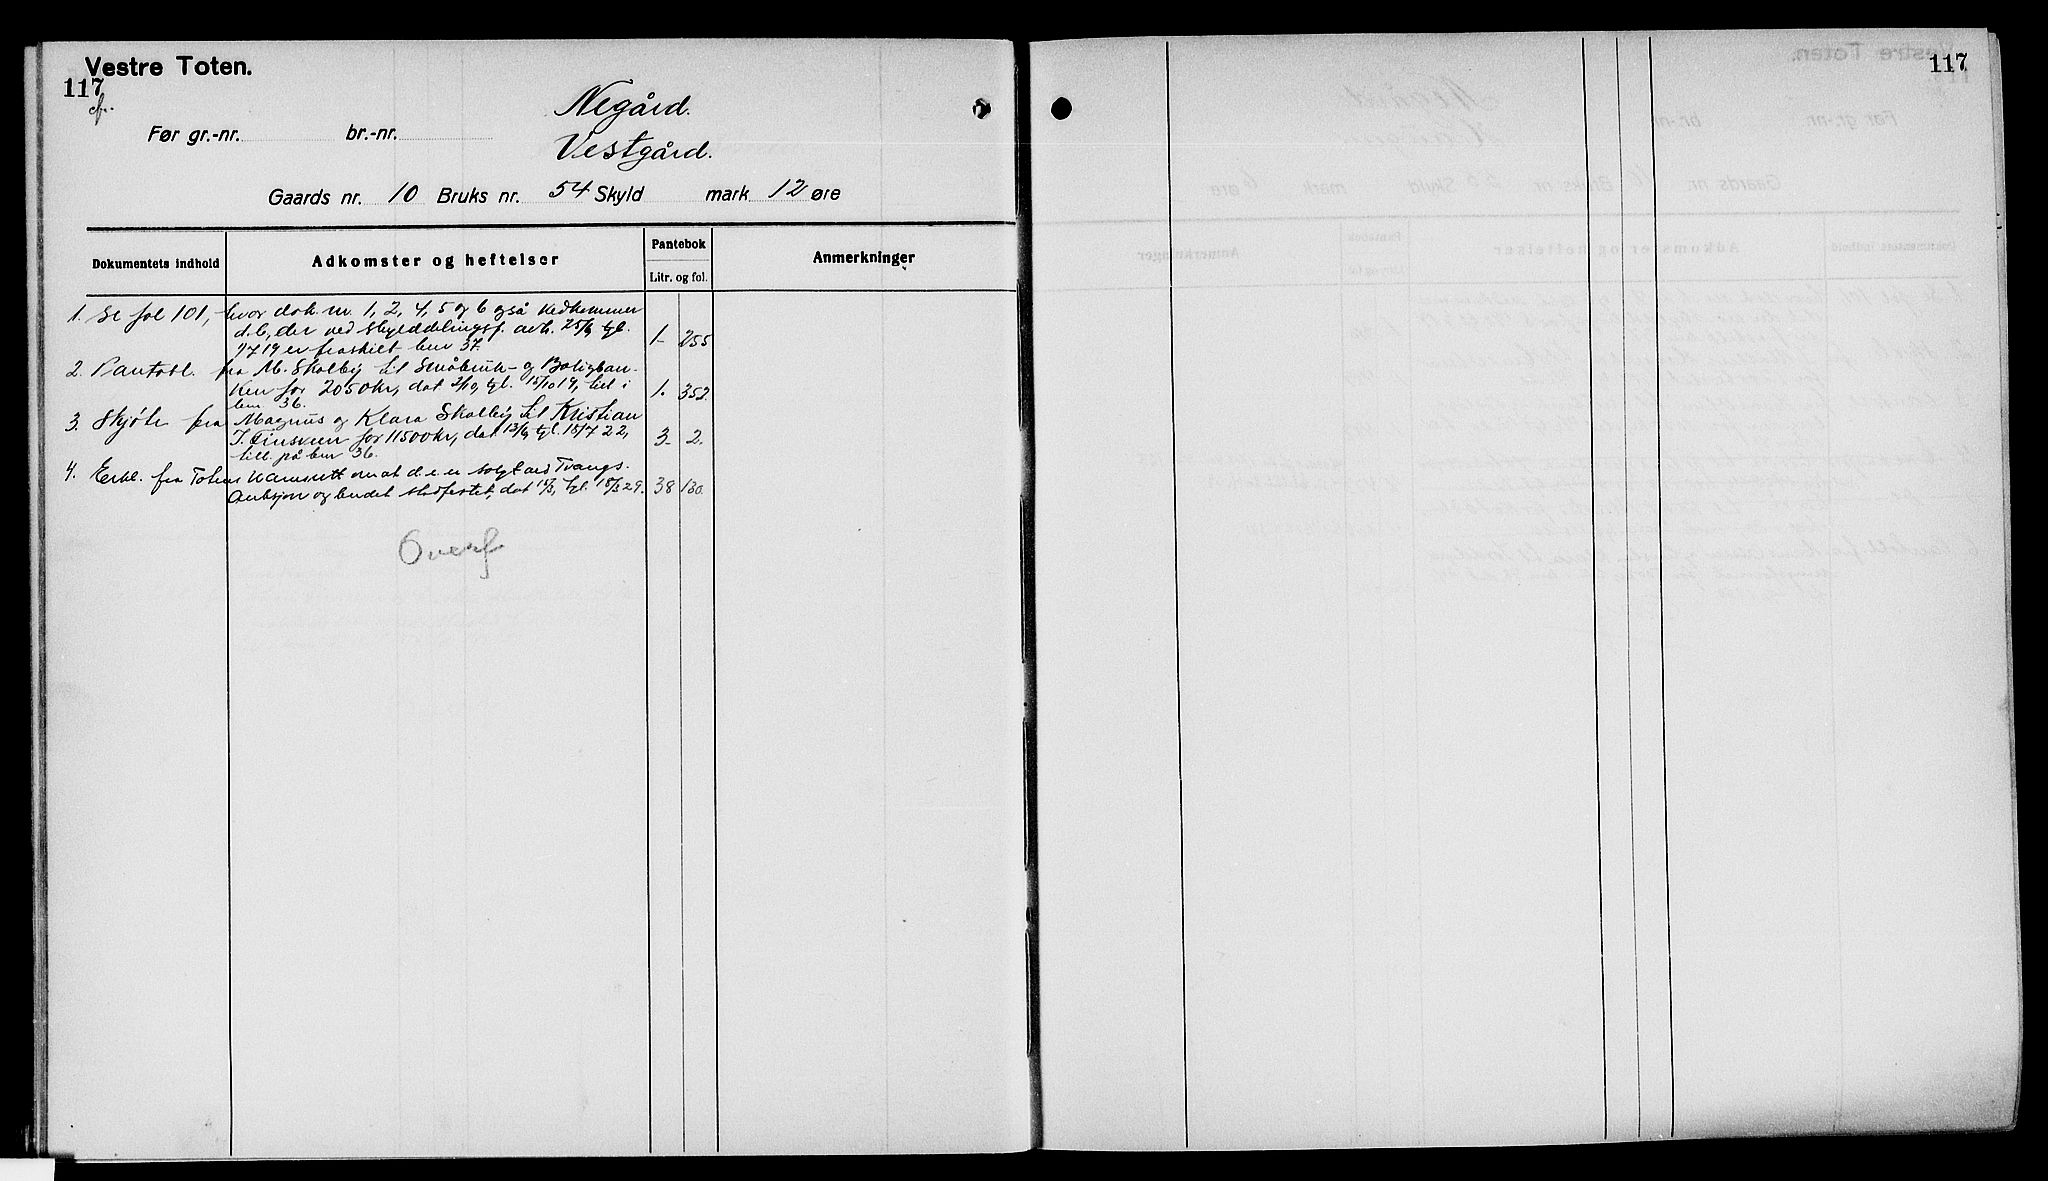 Vestre Toten.
117
Før gr.-nr. br.-nr.
Negård.
Vestgård.
Gaards nr. 10 Bruks nr. 54 Skyld mark 12 øre
Dokumentets indhold
Adkomster og heftelser
Pantebok
Litr. og fol.
Anmerkninger
1. Se fol 101, hvor dok. nr. 1, 2, 4, 5 og 6 også vedkommer
d.e., der ved skylddelingsf. avh. 25/9, tgl.
1/7 19 er fraskilt bnr 37. 1- 255
2. Pantobl. fra M. Skolby til Småbruk- og Boligban-
ken for 2050 kr, dat 2/10, tgl. 15/10 19, till i
bnr 36. 1. 352.
3. Skjøte fra Magnus og Klara Skolby til Kristian
J. Einsveen for 11500 kr, dat 13/6, tgl. 15/7 22,
till. på bnr 36. 3- 2.
4. Erkl. fra Totens Namsrett om at d.e. er solgt ved Tvangs-
auksjon og budet stadfestet, dat 15/3, tgl. 18/3 29. 38 130.
Overf
117